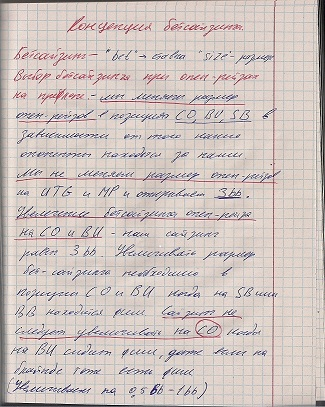 Концепция бетсайзинга.
Бетсайзинг - "bet" - ставка "size" - размер
Выбор бетсайзинга при опен-рейзах
на префлопе - мы меняем размер
опен-рейзов в позициях CO, BU, SB в
зависимости от того какие
оппоненты находятся за нами
Мы не меняем размер опен-рейзов
на UTG и MP и открываем 3bb.
Увеличение бетсайзинга опен-рейза
на CO и BU - наш сайзинг
равен 3bb. Увеличивать размер
бет-сайзинга необходимо в
позиции CO и BU когда на SB или
BB находится фиш сайзинг не
следует увеличивать на CO когда
на BU сидит фиш, даже если на
блайндах тоже есть фиш
(Увеличиваем на 0,5bb-1bb)